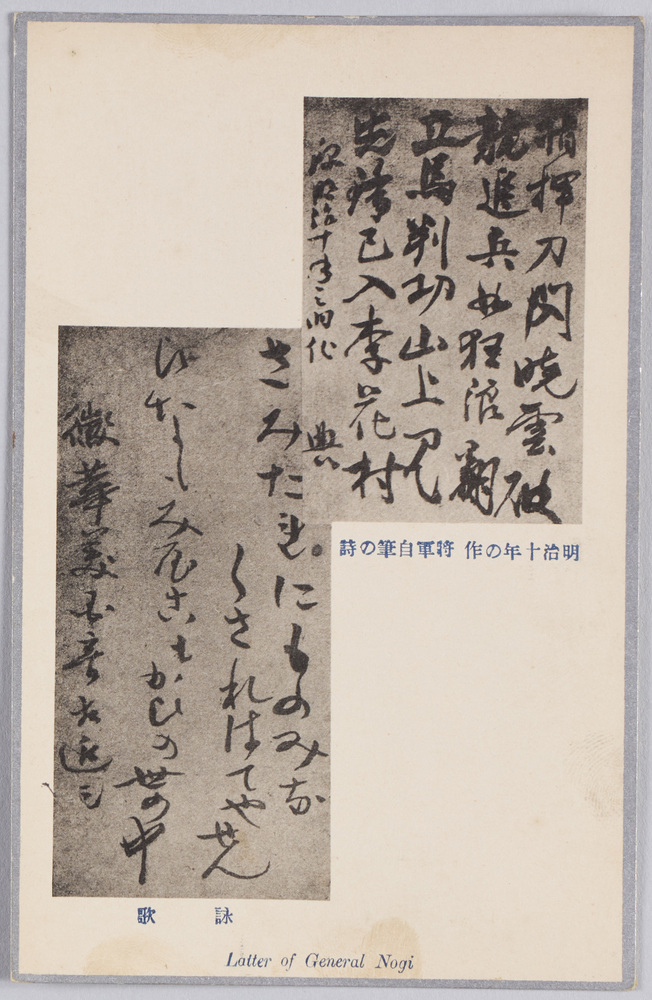 指揮刀閃暁雲破
競進兵如狂浪翻
立馬判功山上
先鋒已入李花村
明治十年之旧作
典
明治十年の作 將軍自筆の詩
さみたれにものみな
くされはてやせん
ひなもみやこもかびの世の中
詠歌
Latter of General Nogi